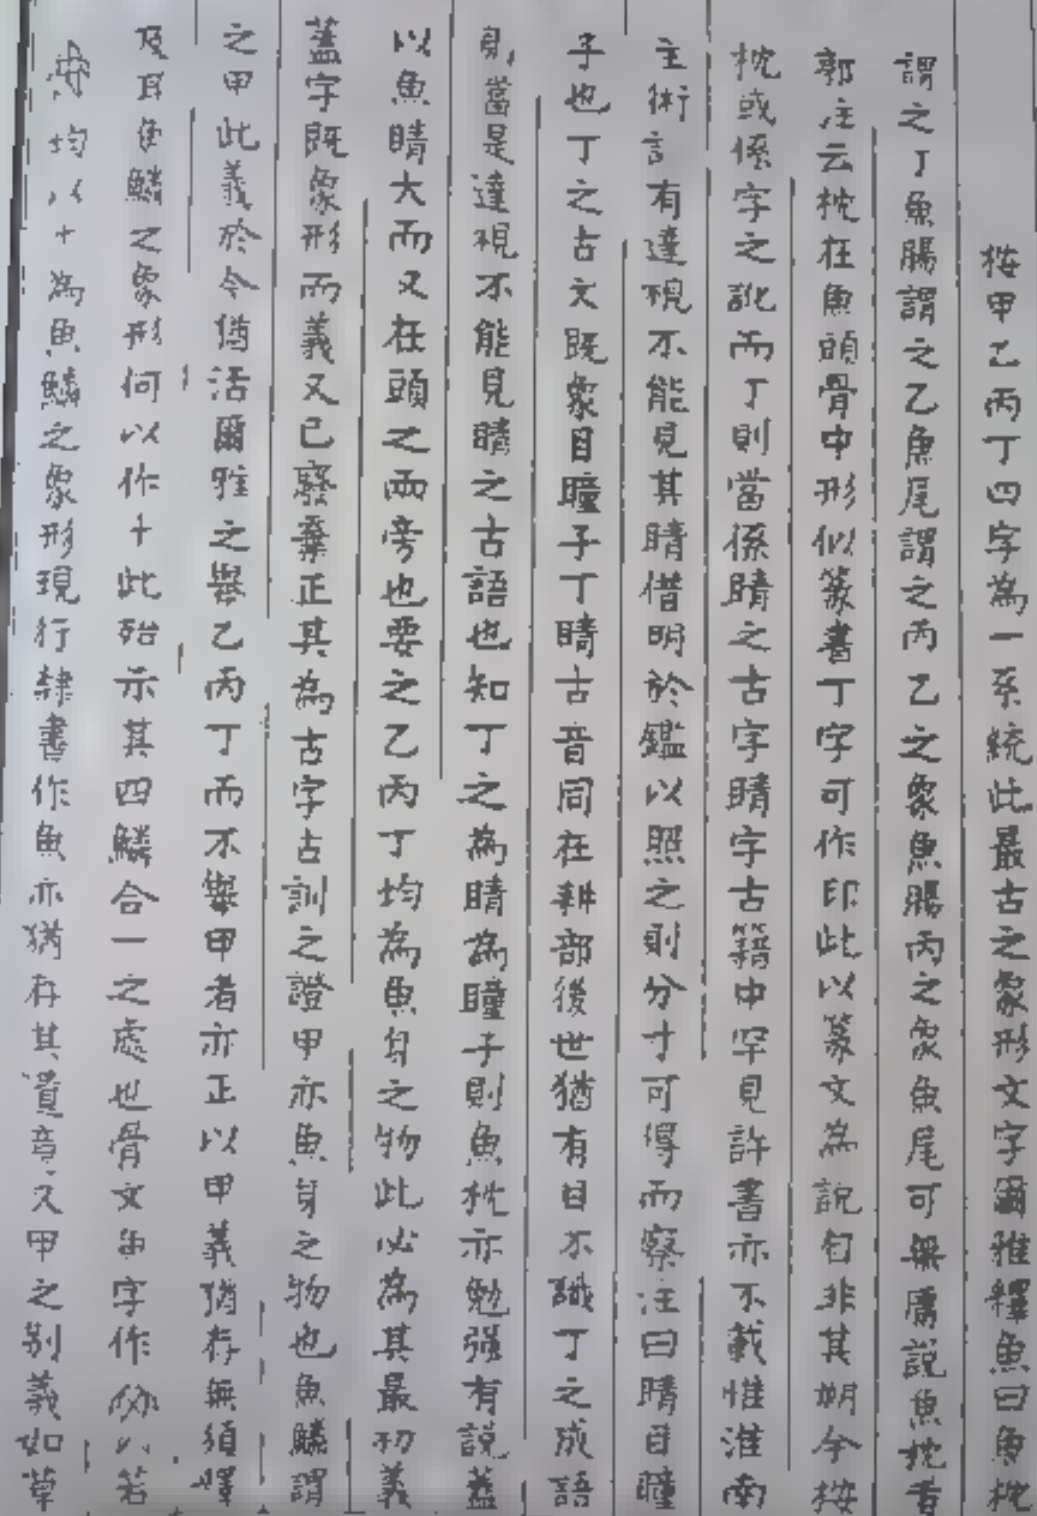 按甲乙丙丁四字為一系統此最古之象形文字爾雅釋魚曰魚枕
謂之丁魚腸謂之乙魚尾謂之丙乙之象魚腸丙之象魚尾可無庸說魚枕者
郭注云枕在魚頭骨中形似篆書丁字可作印此以篆文為說自非其朔今按
枕或係字之訛而丁則當係睛之古字睛字古籍中罕見許書亦不載惟淮南
主術訓有達視不能見其睛借明於鑑以照之則分寸可得而察注曰睛目瞳
子也丁之古文既象目瞳子丁睛古音同在耕部後世猶有目不識丁之成語
則當是達視不能見睛之古語也知丁之為睛為瞳子則魚枕亦勉強有說蓋
以魚睛大而又在頭之兩旁也要之乙丙丁均為魚身之物此必為其最初義
蓋字既象形而義又已廢棄正其為古字古訓之證甲亦魚身之物也魚鱗謂
之甲此義於今猶活爾雅之舉乙丙丁而不舉甲者亦正以甲義猶存無須釋
及耳魚鱗之象形何以作十此殆示其四鱗合一之處也骨文魚字作若
均以十為魚鱗之象形現行隸書作魚亦猶存其遺意又甲之別義如草